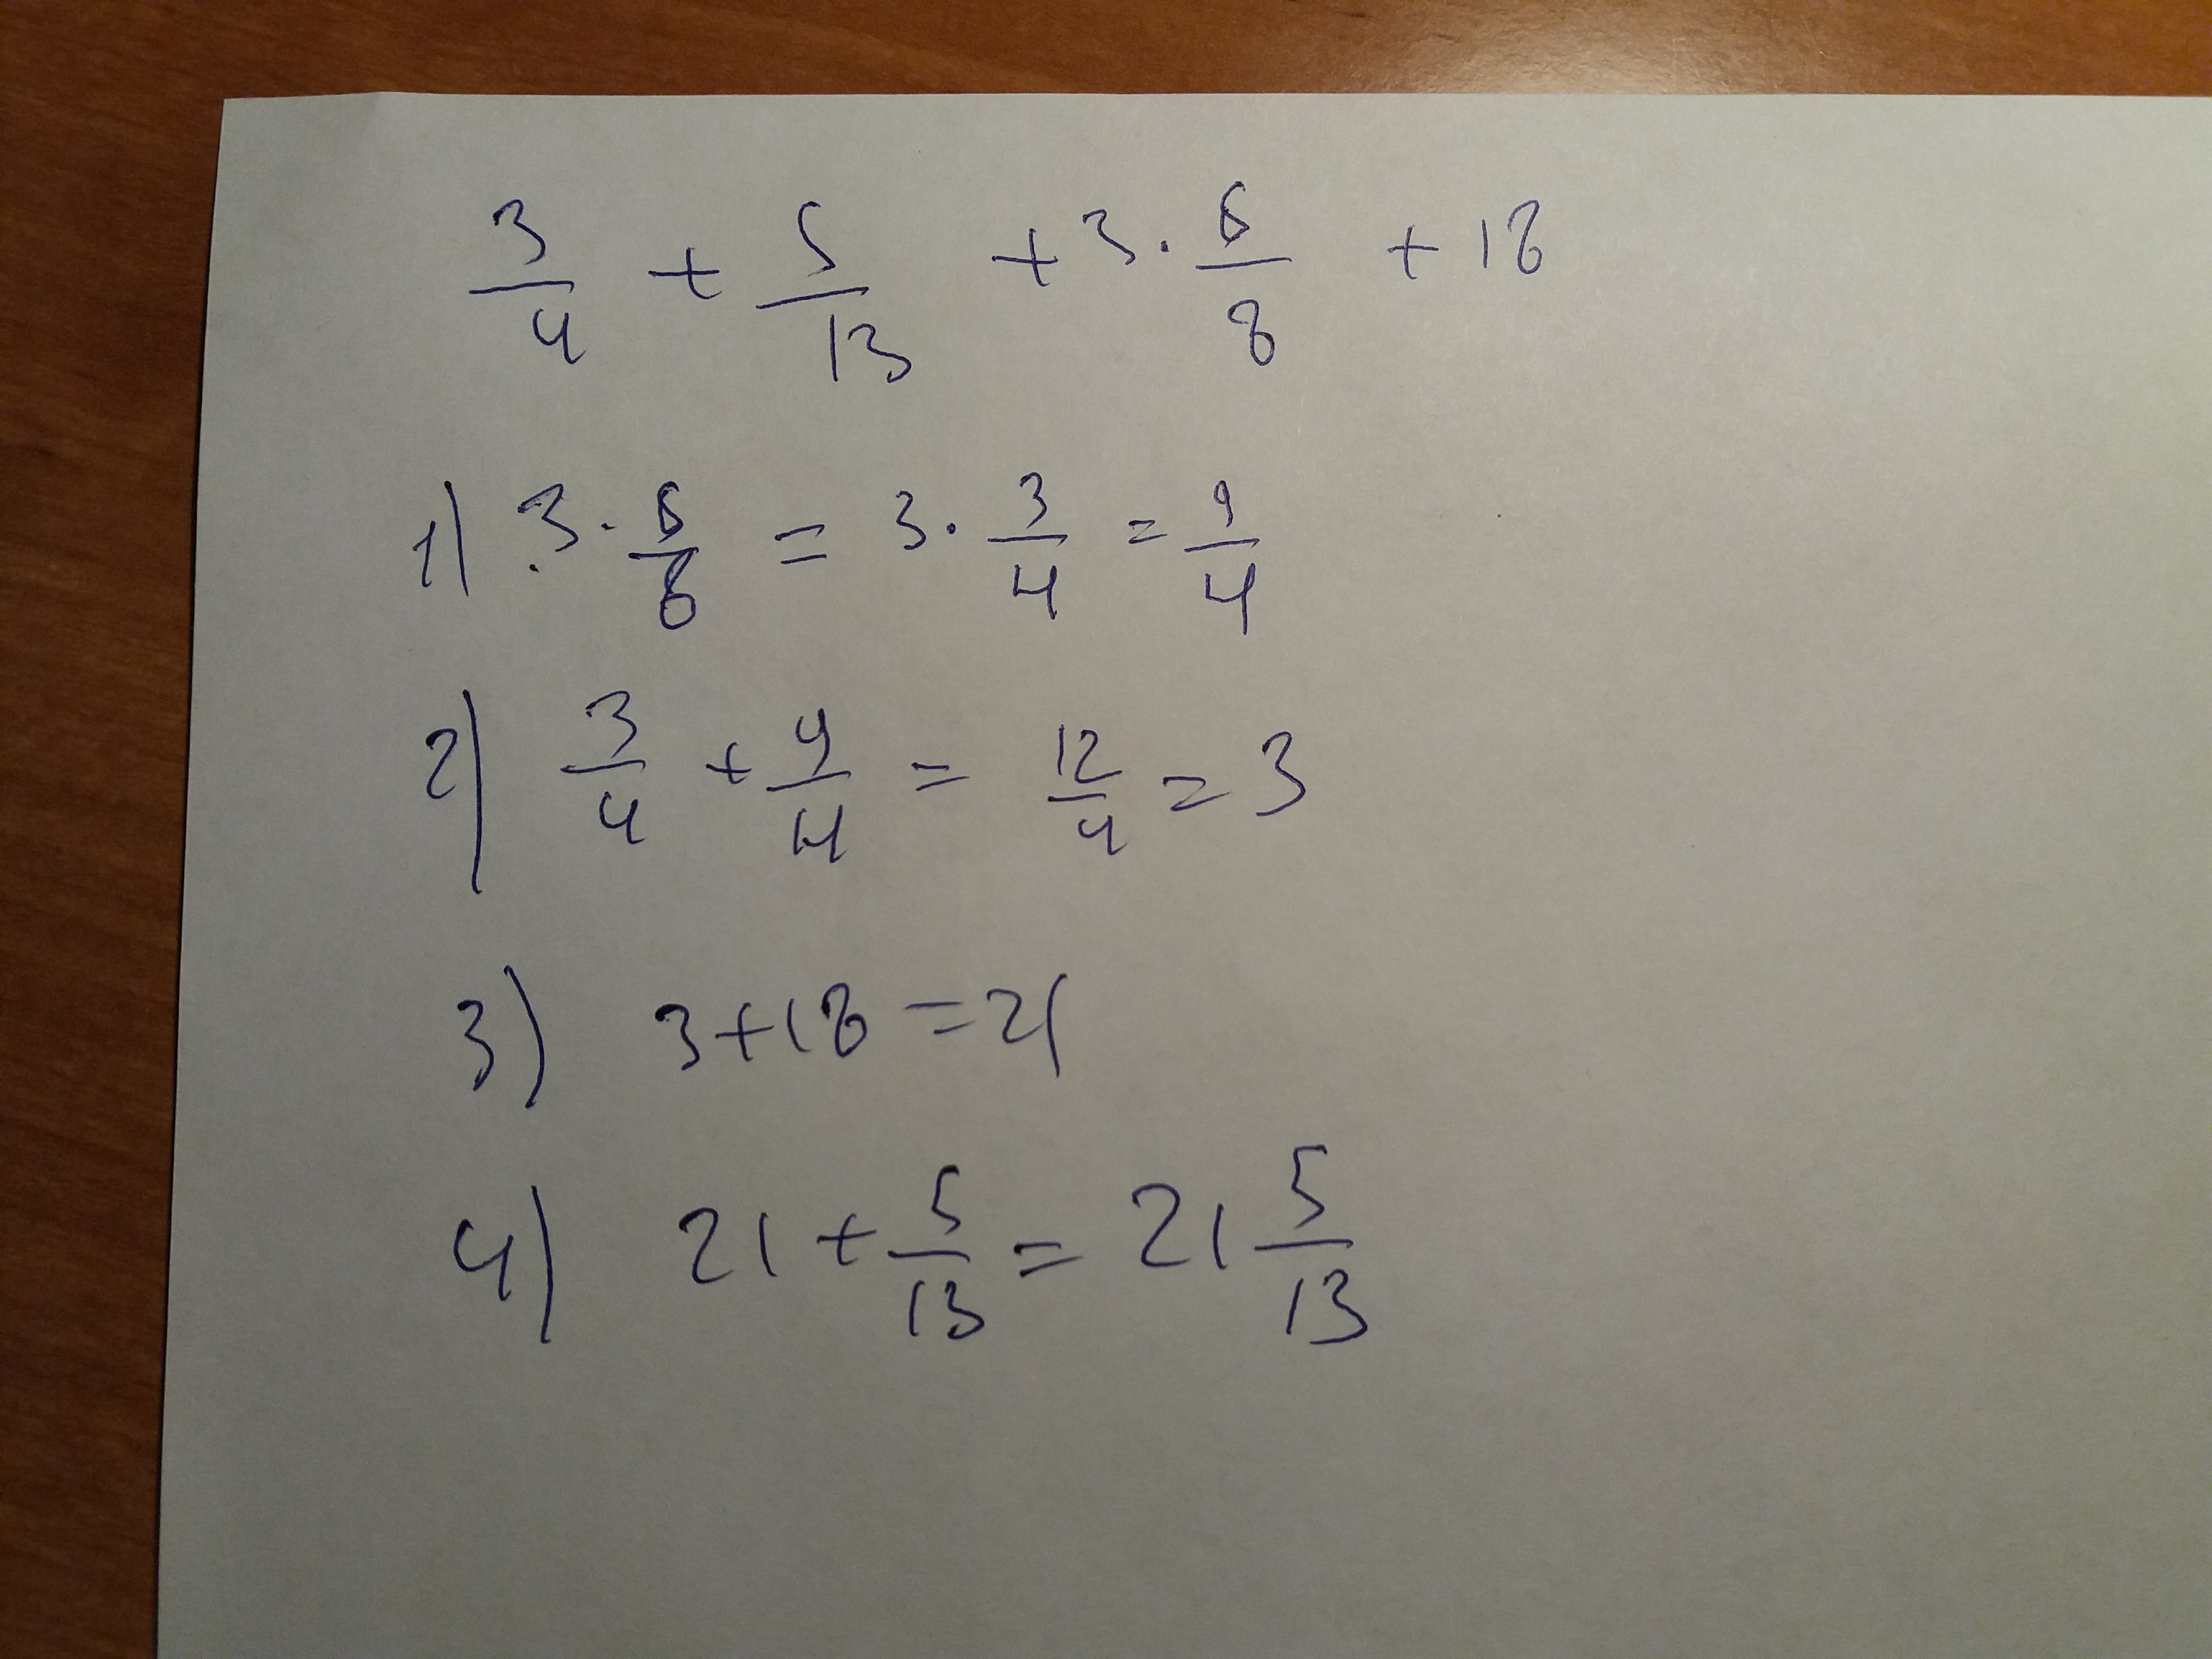 3/4 + 5/13 + 3 · 6/8 + 18
1) 3 · 6/8 = 3 · 3/4 = 9/4
2) 3/4 + 9/4 = 12/4 = 3
3) 3 + 18 = 21
4) 21 + 5/13 = 21 5/13